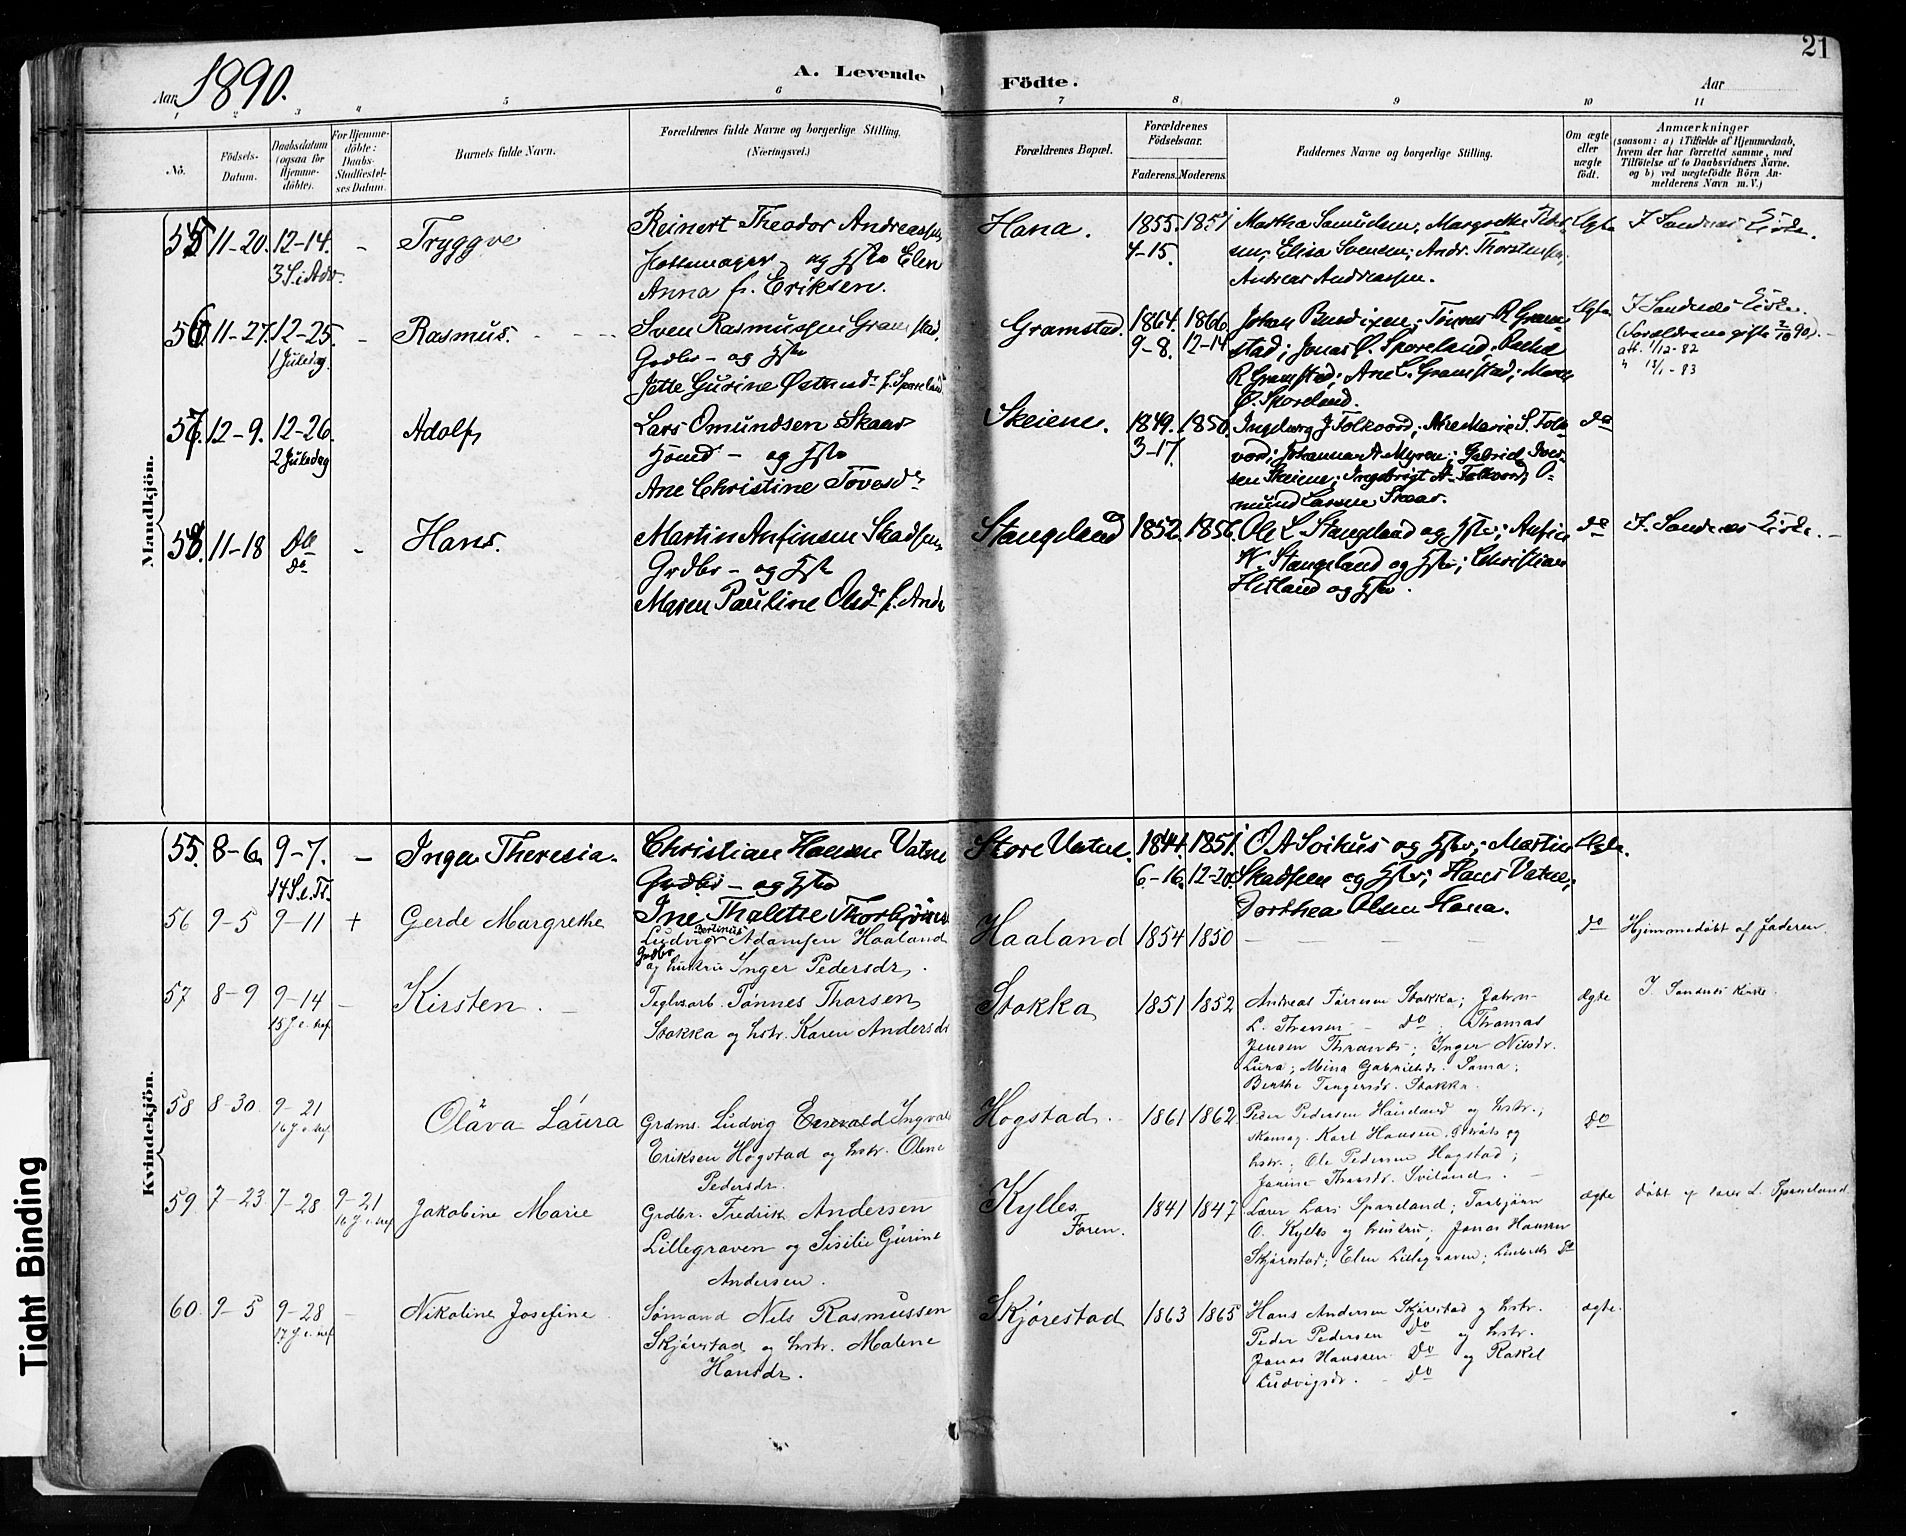 21
Aar 1890.
A. Levende Födte.
Aar
1 2 3 4 5 6 7 8 9 10 11
No.
Födsels-Datum.
Daabsdatum (ogsaa for Hjemme-döbte).
For Hjemme-döbte: Daabs-Stadfæstel-ses Datum.
Barnets fulde Navn.
Forældrenes fulde Navne og borgerlige Stilling. (Næringsvei.)
Forældrenes Bopæl.
Forældrenes Födselsaar.
Faderens. Moderens.
Faddernes Navne og borgerlige Stilling.
Om ægte eller uægte födt.
Anmærkninger
(saasom: a) i Tilfælde af Hjemmedaab,
hvem der har forrettet samme, med
Tilföielse af to Daabsvidners Navne,
og b) ved uægtefödte Börn An-
melderens Navn m. V.)
Mandkjön.
55 11-20. 12-14. - Tryggve Reinert Theodor Andreassen Hana. 1855. Martha Samuelsen; Ægte I Sandnes Kirke.
3 S. i Adv. og Hstr Elen 4-15. Elisa Svensen; Andr. Thorstensen;
Anna f. Eriksen. Andreas Andreassen.
56 11-27. 12-25. - Rasmus. Sven Rasmussen Gramstad. Gramstad. 1864. 1866. Ægte I Sandnes Kirke.
1 Juledag. Grdbr - og Hstr 9-8. 12-14 stad; Jonas Ø. Sporeland; (Forældrene gifte 2/10 90). -
Jette Gurine Østensdr f. Sporeland R Gramstad; Ane L. Gramstad; att. 1/12-82
Ø. Sporeland.
57 12-9. 12-26. Adolf Lars Omundsen Skaar Skeiene. 1849. 1850. Ingeborg J Folkvord; Ane Marie S. Folk- do
2 Juledag - og Hstr 3-17. vord; Johanna A Myren; Gabriel Iver-
Ane Christine Tovesdr sen Skeiene; Ingebrigt A. Folkvord; O-
mund Larsen Skaar.
58. 11-18 Do - Hans. Martin Anfinsen Skadsem Stangeland 1852. 1856. Ole L. Stangeland og Hstr; Anfin do I. Sandnes Kirke. -
Do Grdbr - og Hstr Stangeland og Hstr; Christian
Maren Pauline Olsdr f. Hetland og Hstr.
Kvindekjön.
55. 8-6. 9-7. - Inga Theresia. Christian Hansen Vatne Store Vatne. 1844. 1851. O A Soihus og Hstr; Martin Ægte.
14 S. e. Tr. Grdbr - og Hstr 6-16. 12-20. Skadsem og Hstr; Hans Vatne;
Ine Thalette Dorthea Olsen Hana.
56 9-5 9-11 + Gerde Margrethe Ludvig Bertinus Adamsen Haaland Haaland 1854 1850 - - - - do Hjemmedøbt af Faderen.
Grdbr. og hustru Inger Pedersdr.
57 8-9 9-14 - Kirsten. Teglarb. Tønnes Thorsen Stokka 1851 1852 Andreas Tørresen Stokka; ægte I. Sandnes Kirke.
Stokka og hstr. Karen Andersdr L. Thorsen - do; Thomas
Jensen Thrands; Inger Nilsdr.
Lura; Mina Gabrielsdr. Soma;
Berthe Tengersdr. Stokka.
58 8-30 9-21 Olava Laura Grdms. Ludvig Enevald Ingvald Hogstad. 1861 1862 Peder Pedersen Hauland og hstr.; do
Eriksen Hogstad og hstr. Olene skomag. Karl Hansen og
Pedersdr. hstr.; Ole Pedersen Hogstad;
Janine Sviland.
59. 7-23 7-28 9-21 Jakobine Marie Grdbr. Fredrik Andersen Kylles. 1841 1847 Lærer Lars Sporeland; Torbjørn ægte Døbt af lærer L. Sporeland
Lillegraven og Sisilie Gurine Foren. O. Kylles og hustru; Jonas Hansen
Andersen. Skjørestad; Elen Lillegraven; Lisbeth do
60. 9-5 9-28 - Nikoline Josefine Sømand Nils Rasmussen Skjørestad 1863 1865 Hans Andersen Skjørestad og hstr. ægte.
Skjørestad og hstr. Malene Peder Pedersen do og hstr.
Hansdr. Jonas Hanssen do og Rakel
Ludvigsdr. - do
Tight Binding